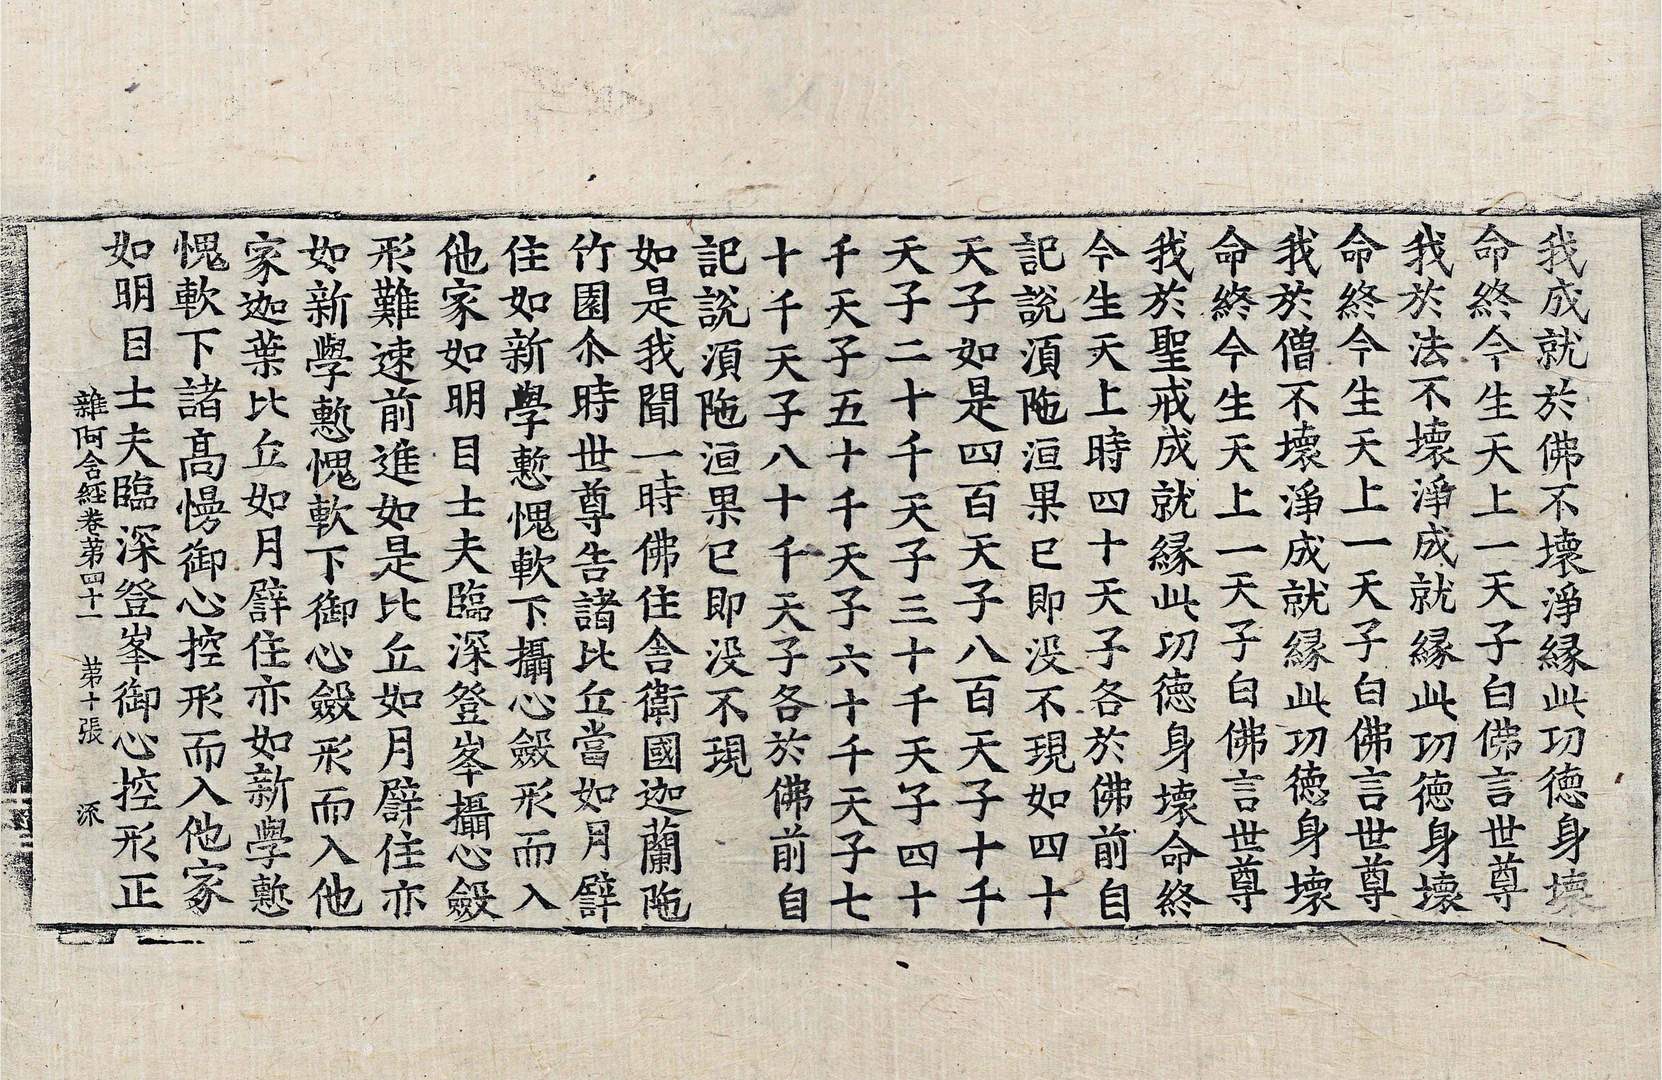 我成就於佛不壞淨緣此功德身壞
命終今生天上一天子白佛言世尊
我於法不壞淨成就緣此功德身壞
命終今生天上一天子白佛言世尊
我於僧不壞淨成就緣此功德身壞
命終今生天上一天子白佛言世尊
我於聖戒成就緣此功德身壞命終
今生天上時四十天子各於佛前自
記說湏陁洹果已即没不現如四十
天子如是四百天子八百天子十千
天子二十千天子三十千天子四十
千天子五十千天子六十千天子七
十千天子八十千天子各於佛前自
記說湏陁洹果已即没不現
如是我聞一時佛住舍衛國迦蘭陁
竹園尒時世尊告諸比丘當如月譬
住如新學慙愧軟下攝心斂形而入
他家如明目士夫臨深登峯攝心斂
形難速前進如是比丘如月譬住亦
如新學慙愧軟下御心斂形而入他
家迦葉比丘如月譬住亦如新學慙
愧軟下諸高慢御心控形而入他家
如明目士夫臨深登峯御心控形正
雜阿含經卷第四十一 第十張